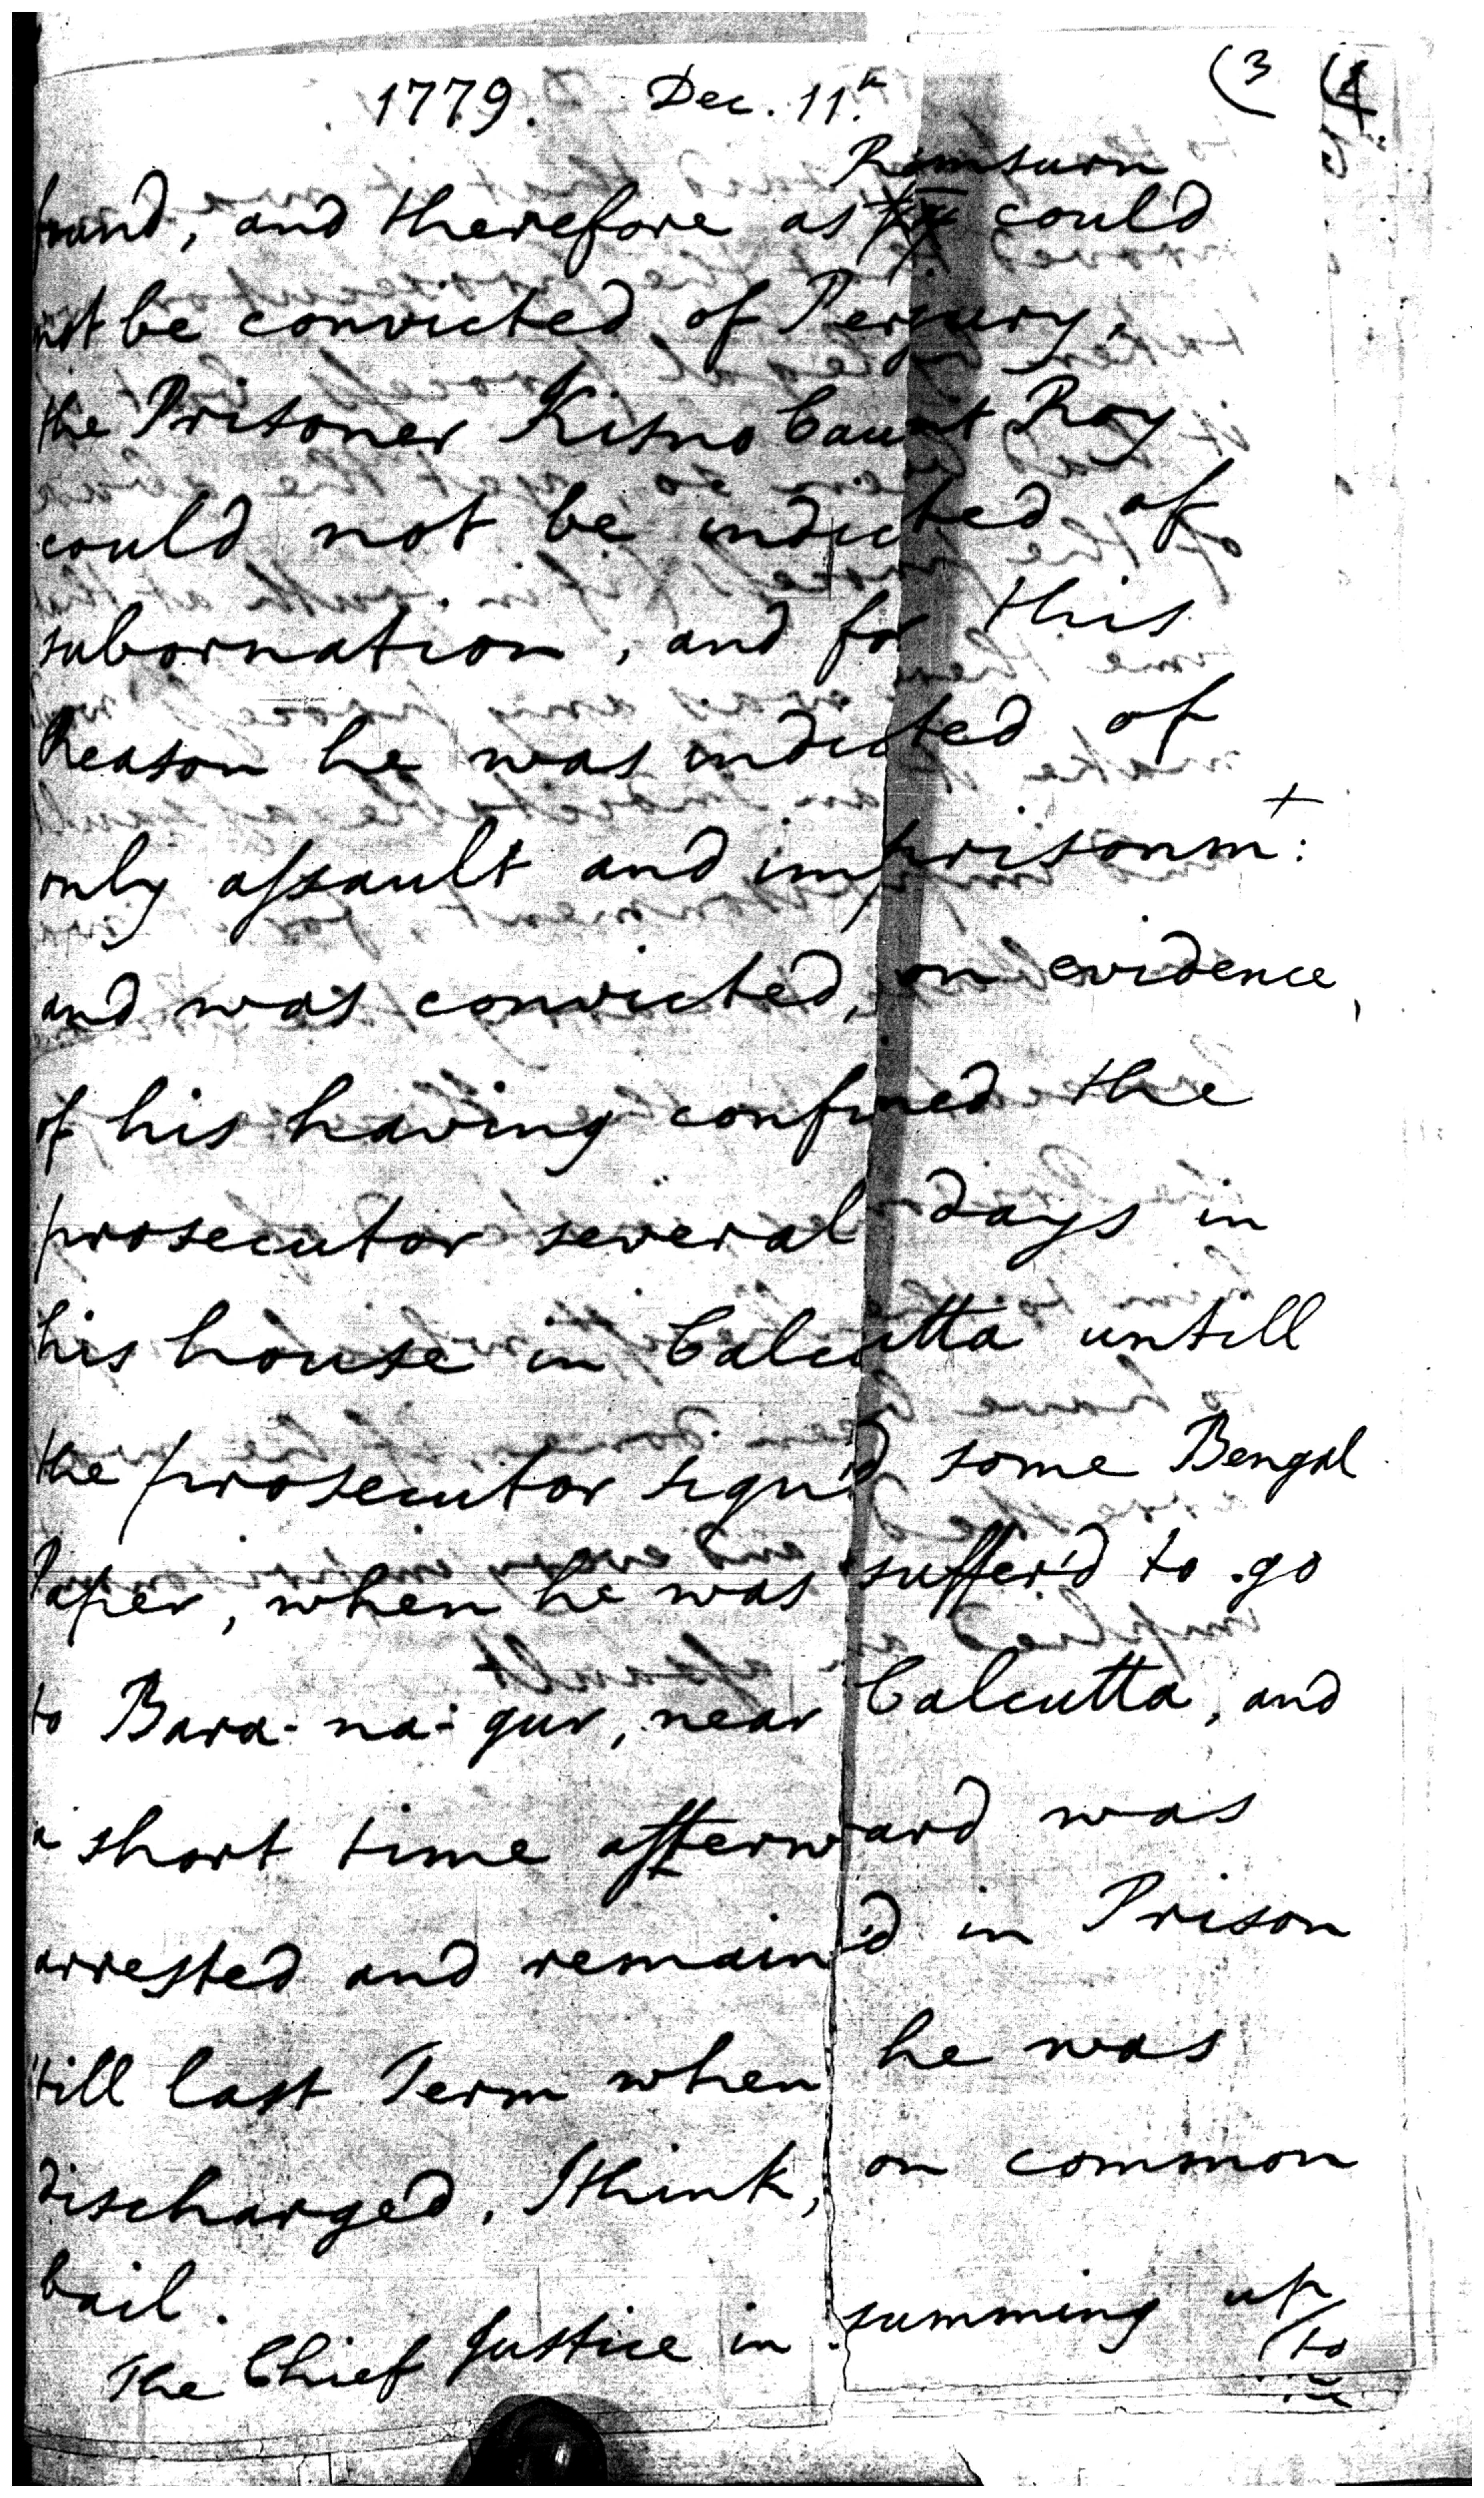 1779. Dec. 11th (3
Ramsurn
and, and therefore as could
not be convicted of Perjury,
the Prisoner Kisno Caunt Roy
could not be indicted of
subornation, and for this
Reason he was indicted of
only assault and imprisonmt:
and was convicted, on evidence,
of his having confined the
prosecutor several days in
his house in Calcutta untill
the prosecutor sign'd some Bengal
Paper, when he was suffer'd to go
to Bara-na-gur, near Calcutta, and
a short time afterward was
arrested and remain'd in Prison
'till last Term when he was
discharged, I think, on common
bail.
The Chief Justice in summing up
(to
the